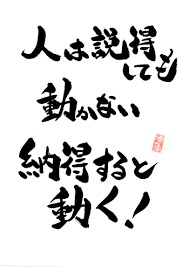 人は説得
しても
動かない
納得すると
動く!